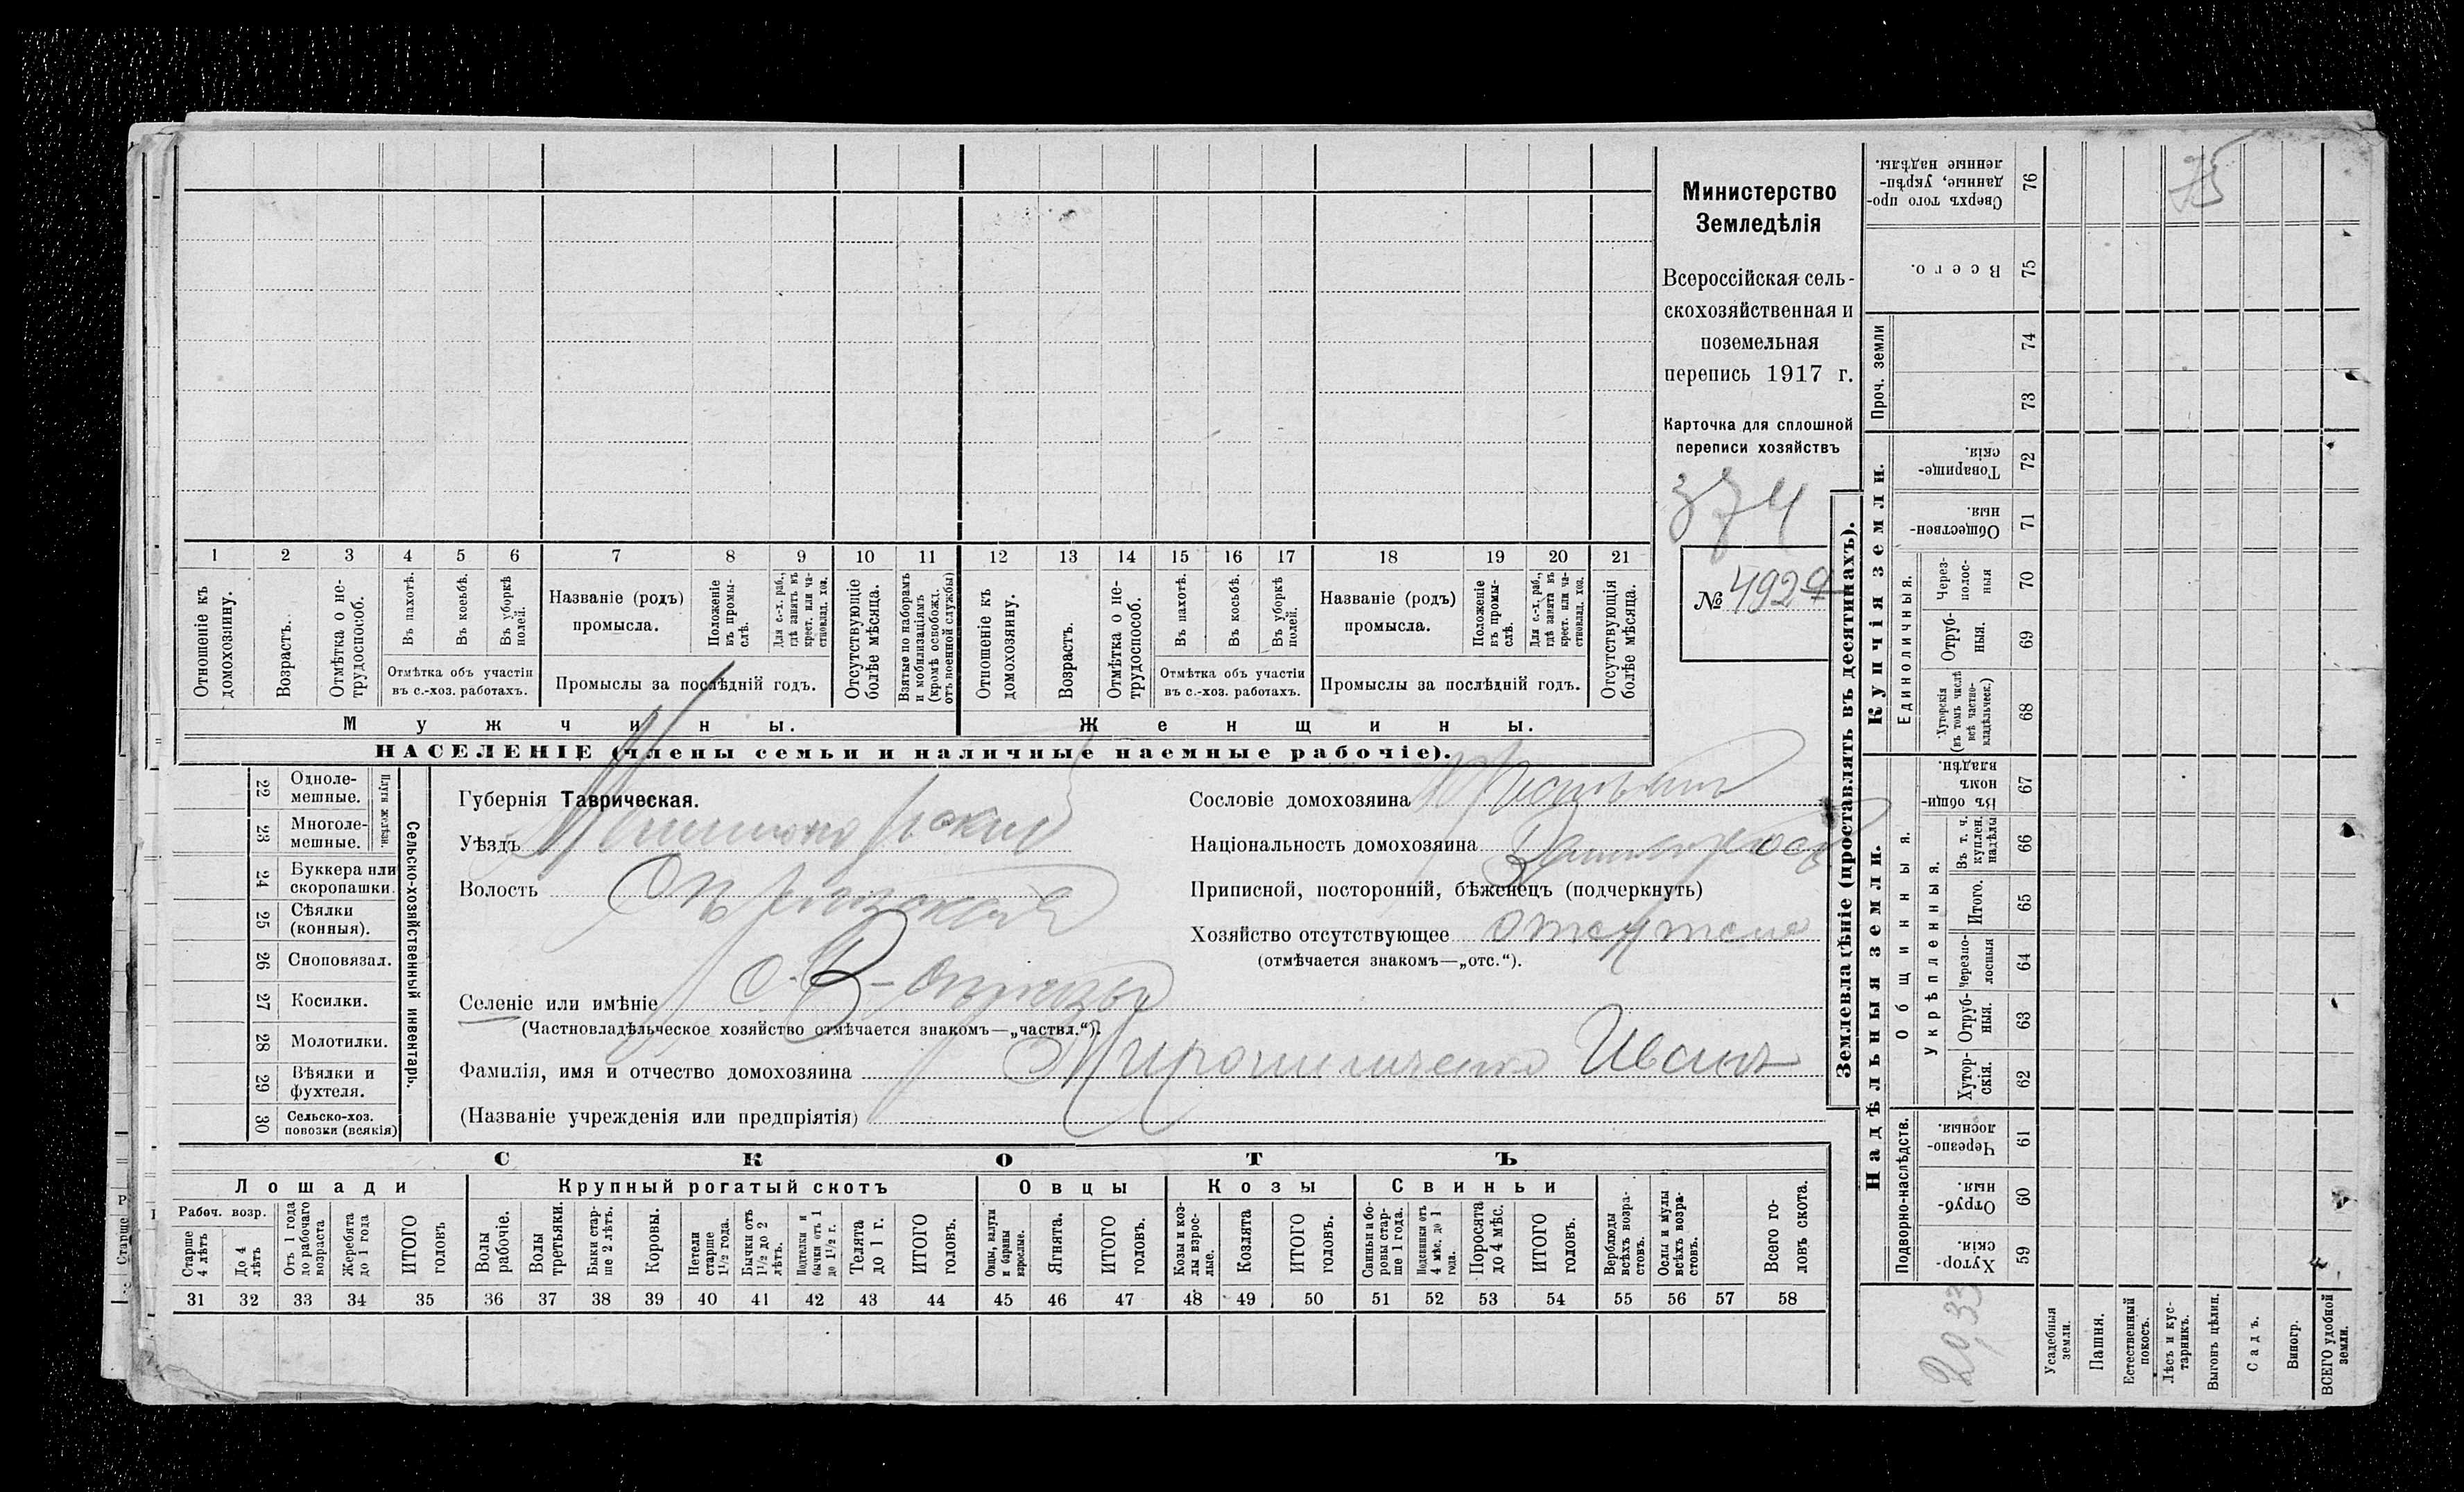 Министерство
Земледѣлія
Всероссійская сель-
скохозяйственная и
поземельная
перепись 1917 г.
Карточка для сплошной
переписи хозяйствъ
374
№ 4927
1 2 3 4 5 6 7 8 9 10 11 12 13 14 15 16 17 18 19 20 21
Отношеніе къ домохозяину.
Возрастъ.
Отмѣтка о не-
трудоспособ.
Въ пахотѣ.
Въ косьбѣ.
Въ уборкѣ
полей.
Отмѣтка объ участіи
въ с.-хоз. работахъ.
Названіе (родъ)
промысла.
Положеніе
въ промы-
слѣ.
Для с.-х. раб.,
гдѣ занятъ въ
крест. или ча-
стновлад. хоз.
Промыслы за послѣдній годъ.
Отсутствующіе
болѣе мѣсяца.
Взятые по наборамъ
и мобилизаціямъ
(кромѣ освобожд.
отъ военной службы)
Отношеніе къ
домохозяину.
Возрастъ.
Отмѣтка о не-
трудоспособ.
Въ пахотѣ.
Въ косьбѣ.
Въ уборкѣ
полей.
Отмѣтка объ участіи
въ с.-хоз. работахъ.
Названіе (родъ)
промысла.
Положеніе
въ промы-
слѣ.
Для с.-х. раб.,
гдѣ занята въ
крест. или ча-
стновлад. хоз.
Промыслы за послѣдній годъ.
Отсутствующія
болѣе мѣсяца.
Мужчины.
Женщины.
НАСЕЛЕНІЕ (члены семьи и наличные наемные рабочіе).
22 Одноле-
мешные.
23 Многоле-
мешные.
Плуги желѣзн.
24 Буккера или
скоропашки.
25 Сѣялки
(конныя).
26 Сноповязал.
27 Косилки.
28 Молотилки.
29 Вѣялки и
фухтеля.
30 Сельско-хоз.
повозки (всякія)
Сельско-хозяйственный инвентарь.
Губернія Таврическая.
Уѣздъ
Волость
Селеніе или имѣніе
(Частновладѣльческое хозяйство отмѣчается знакомъ—„частвл.“).
Фамилія, имя и отчество домохозяина Мирошниченко Иванъ
(Названіе учрежденія или предпріятія)
Сословіе домохозяина
Національность домохозяина
Приписной, посторонній, бѣженецъ (подчеркнуть)
Хозяйство отсутствующее
(отмѣчается знакомъ—„отс.“).
СКОТЪ
Лошади
Рабоч. возр.
Старше
4 лѣтъ
До 4
лѣтъ
Отъ 1 года
до рабочаго
возраста
Жеребята
до 1 года
ИТОГО
головъ
Крупный рогатый скотъ
Волы
рабочіе.
Волы
третьяки.
Быки стар-
ше 2 лѣтъ.
Коровы.
Нетели
старше
1½ года.
Бычки отъ
1½ до 2
лѣтъ.
Подтелки и
бычки отъ 1
до 1½ г.
Телята
до 1 г.
ИТОГО
головъ.
Овцы
Овцы, валухи
и бараны
взрослые.
Ягнята.
ИТОГО
головъ.
Козы
Козы и коз-
лы взрос-
лые.
Козлята
ИТОГО
головъ.
Свиньи
Свиньи и бо-
ровы стар-
ше 1 года.
Подсвинки отъ
4 мѣс. до 1
года.
Поросята
до 4 мѣс.
ИТОГО
головъ.
Верблюды
всѣхъ возра-
стовъ.
Ослы и мулы
всѣхъ возра-
стовъ.
Всего го-
ловъ скота.
31 32 33 34 35 36 37 38 39 40 41 42 43 44 45 46 47 48 49 50 51 52 53 54 55 56 57 58
Землевладѣніе (проставлять въ десятинахъ).
Купчія земли.
Надѣльныя земли.
Сверхъ того про-
данные, укрѣп-
ленные надѣлы.
76
75
Всего.
75
Проч. земли
74
73
Товарище-
скія.
72
Обществен-
ныя.
71
Единоличныя.
Через-
полос-
ныя
70
Отруб-
ныя.
69
Хуторскія
(въ томъ числѣ
всѣ частно-
владѣльческ.)
68
Общинныя.
Въ общи-
номъ
владѣн.
67
Укрѣпленныя.
Въ т. ч.
куплен.
надѣлы
66
Итого.
65
черезпо-
лосныя
64
Отруб-
ныя.
63
Хутор-
скія.
62
Подворно-наслѣдств.
Черезпо-
лосныя.
61
Отруб-
ныя.
60
Хутор-
скія.
59
20,33
Усадебныя
земли.
Пашня.
Естественный
покосъ.
Лѣсъ и кус-
тарникъ.
Выгонъ цѣлин.
Садъ.
Виногр.
ВСЕГО удобной
земли.